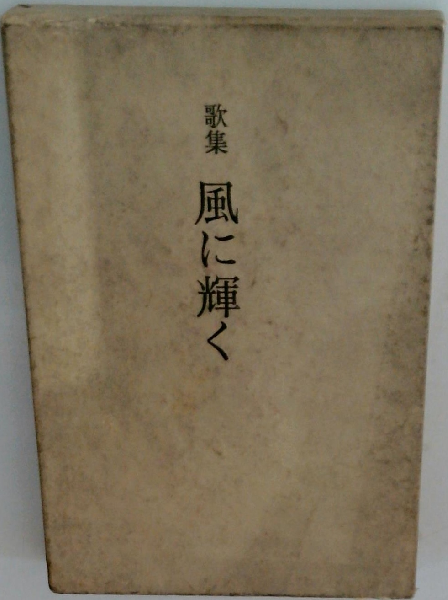 歌集 風に輝く